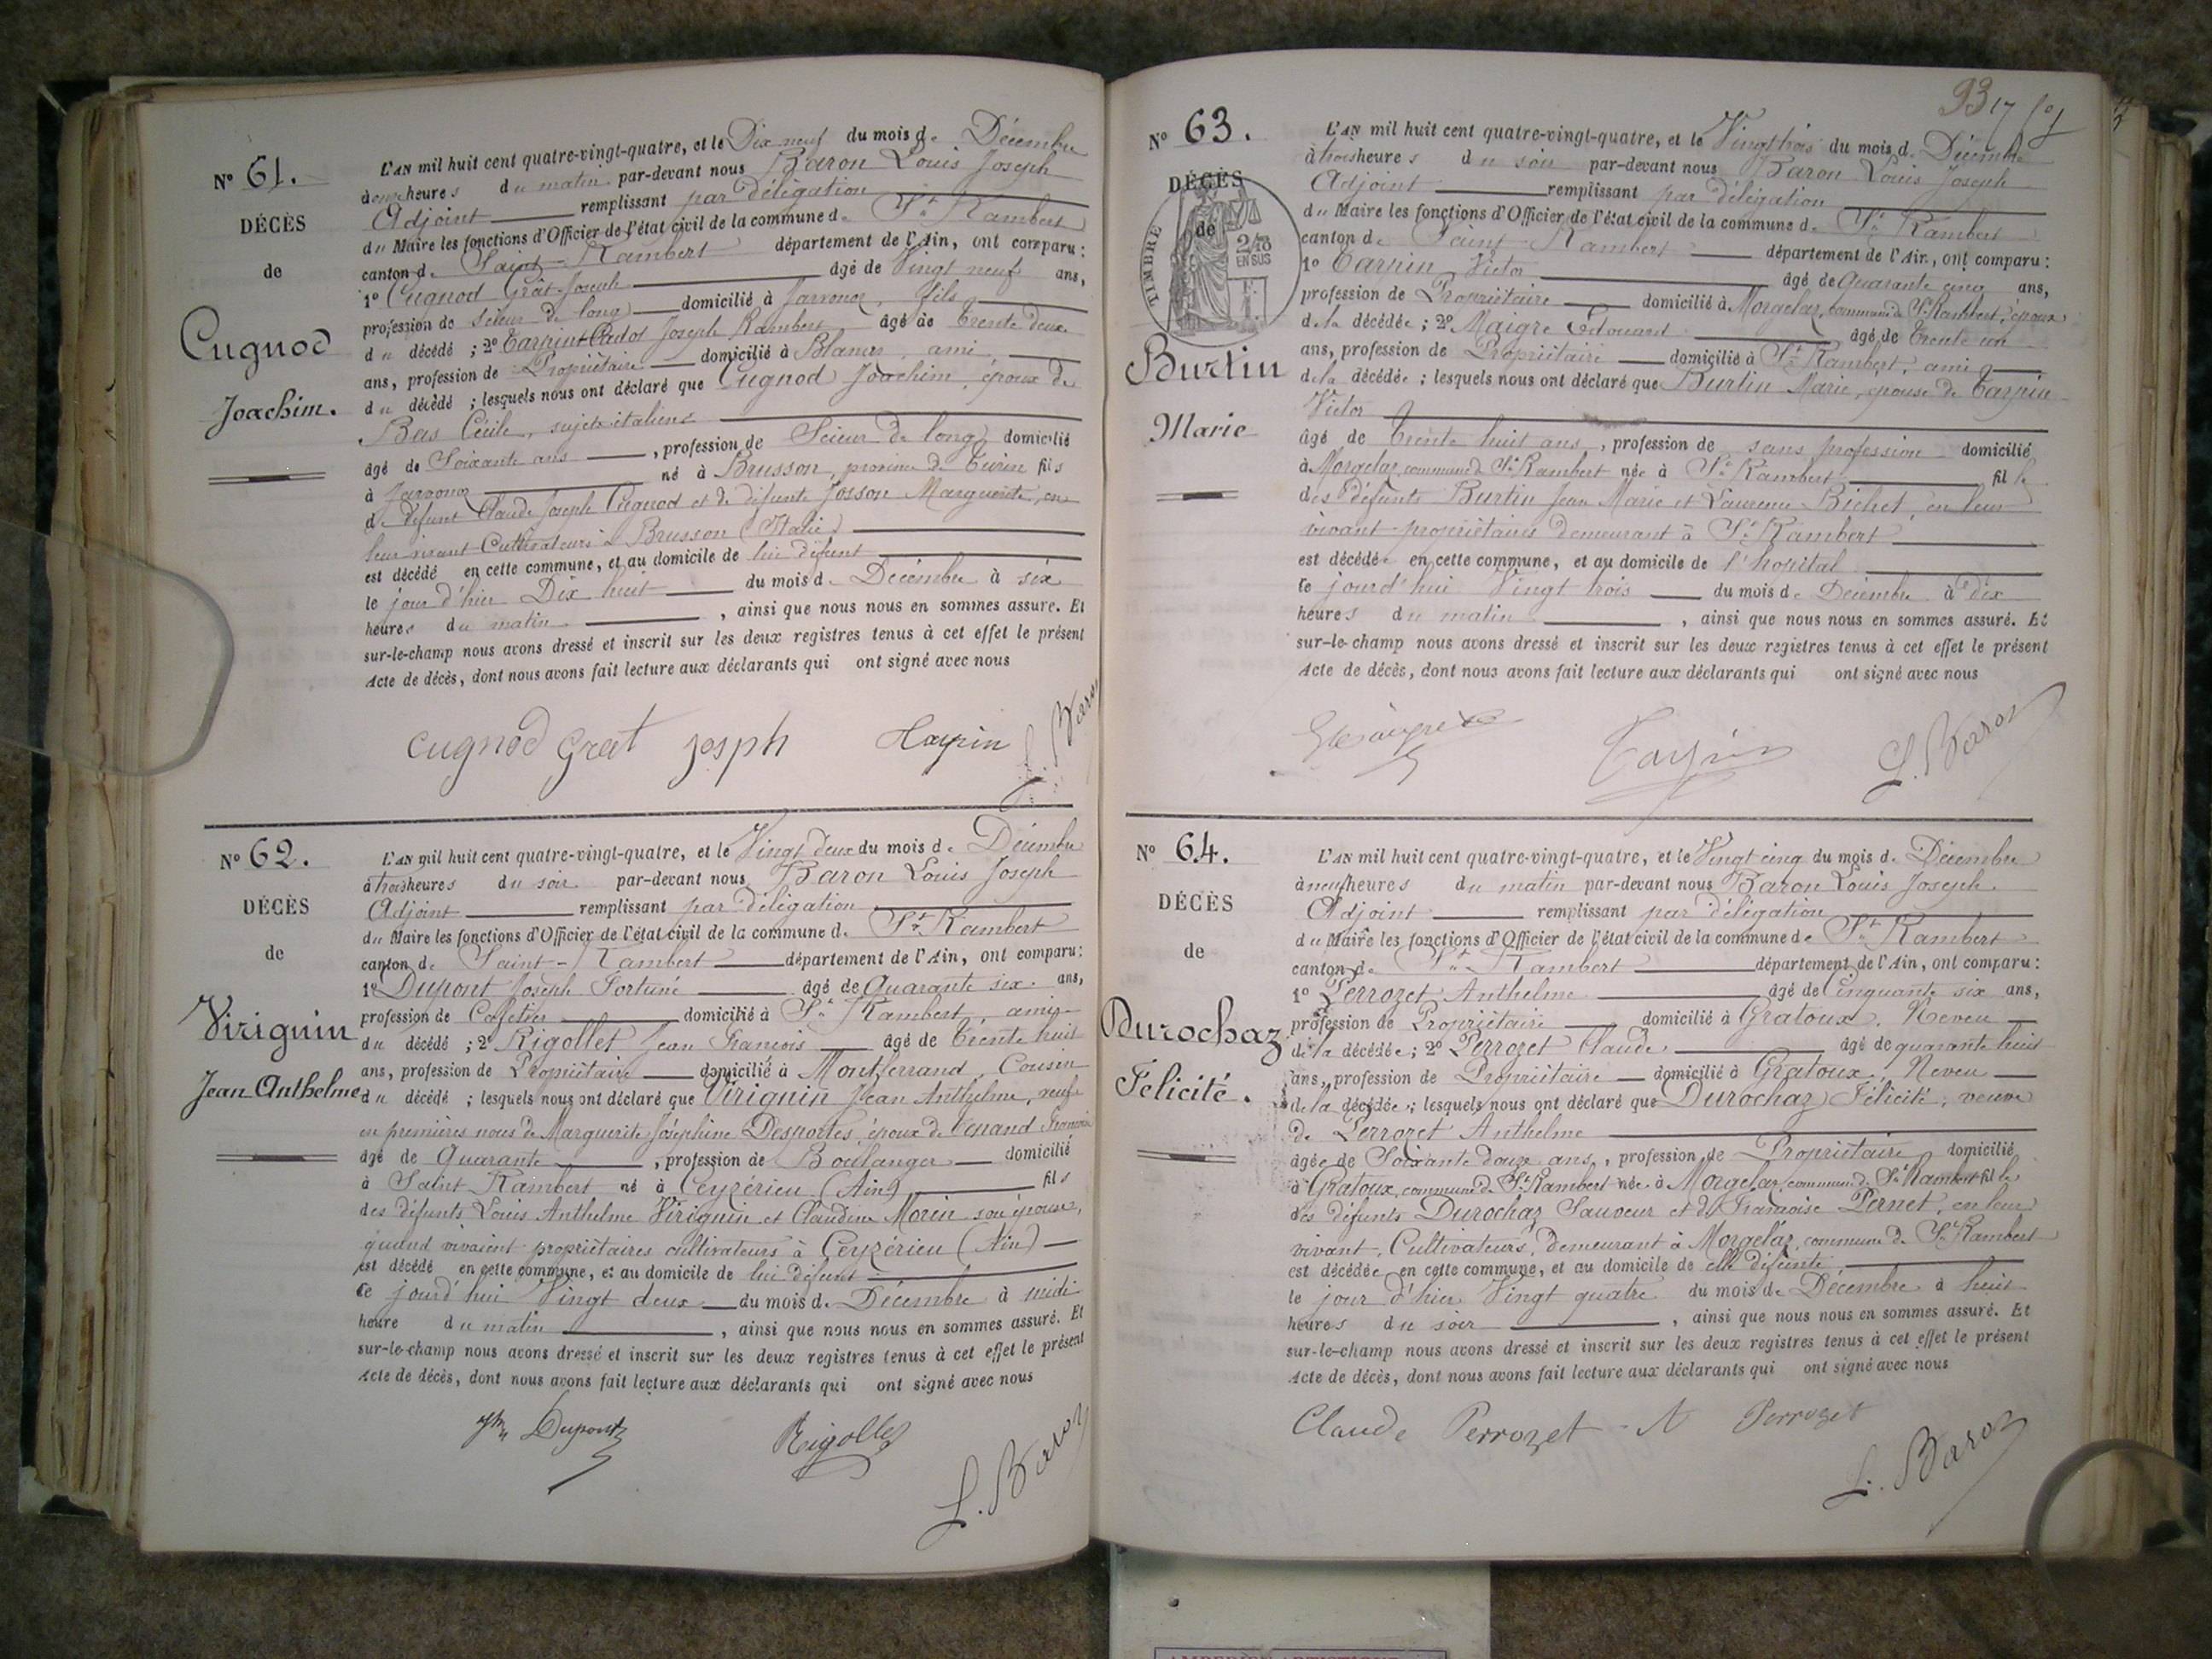 N° 61.
DÉCÈS
de
Cugnod
Joachim.
L'AN mil huit cent quatre-vingt-quatre, et le Dix neuf du mois de Décembre
à onze heures du matin par-devant nous Baron Louis Joseph
Adjoint remplissant par délégation
du Maire les fonctions d'Officier de l'état civil de la commune de St Rambert
canton de Saint-Rambert département de l'Ain, ont comparu:
1° Cugnod Grat Joseph âgé de Vingt neuf ans,
profession de scieur de long domicilié à Javonoz, fils
du décédé ; 2° Joseph Rambert âgé de Trente deux
ans, profession de Propriétaire domicilié à Blanaz, ami
du décédé ; lesquels nous ont déclaré que Cugnod Joachim, époux de
Bes Cécile, sujets italiens
âgé de Soixante ans , profession de Scieur de long domicilié
à né à Brusson, province de Turin fils
de défunt Claude Joseph Cugnod et de défunte Josson Marguerite, en
leur vivant Cultivateurs à Brusson (Italie)
est décédé en cette commune, et au domicile de lui défunt
le jour d'hier Dix huit du mois de Décembre à six
heures du matin , ainsi que nous nous en sommes assuré. Et
sur-le-champ nous avons dressé et inscrit sur les deux registres tenus à cet effet le présent
Acte de décès, dont nous avons fait lecture aux déclarants qui ont signé avec nous
Cugnod Grat Josph Tarpin L. Baron
N° 62.
DÉCÈS
de
Viriguin
Jean Anthelme
L'AN mil huit cent quatre-vingt-quatre, et le Vingt deux du mois de Décembre
à trois heures du soir par-devant nous Baron Louis Joseph
Adjoint remplissant par délégation
du Maire les fonctions d'Officier de l'état civil de la commune de St Rambert
canton de Saint-Rambert département de l'Ain, ont comparu:
1° Dupont Joseph Fortuné âgé de Quarante six ans,
profession de Cafetier domicilié à St Rambert, ami
du décédé ; 2° Rigollet Jean François âgé de Trente huit
ans, profession de Propriétaire domicilié à Montferrand, Cousin
du décédé ; lesquels nous ont déclaré que Viriguin Jean Anthelme, veuf
en premières noces de Marguerite Joséphine Desportes, époux de Venand
âgé de Quarante , profession de Boulanger domicilié
à Saint Rambert né à Ceyzérieu (Ain) fils
des défunts Louis Anthelme Viriguin et Claudine Morin son épouse,
quand vivaient propriétaires cultivateurs à Ceyzérieu (Ain)
est décédé en cette commune, et au domicile de lui défunt
le jourd'hui Vingt deux du mois de Décembre à midi
heure du matin , ainsi que nous nous en sommes assuré. Et
sur-le-champ nous avons dressé et inscrit sur les deux registres tenus à cet effet le présent
Acte de décès, dont nous avons fait lecture aux déclarants qui ont signé avec nous
Dupont Rigollet L. Baron
93
N° 63.
DÉCÈS
de
TIMBRE
2/10
EN SUS
Burtin
Marie
L'AN mil huit cent quatre-vingt-quatre, et le Vingt trois du mois de Décembre
à trois heures du soir par-devant nous Baron Louis Joseph
Adjoint remplissant par délégation
du Maire les fonctions d'Officier de l'état civil de la commune de St Rambert
canton de Saint-Rambert département de l'Ain, ont comparu:
1° Tarpin Victor âgé de Quarante cinq ans,
profession de Propriétaire domicilié à Morgelaz, commune de St Rambert, époux
de la décédée ; 2° Maigre Edouard âgé de Trente un
ans, profession de Propriétaire domicilié à St Rambert, ami
de la décédée ; lesquels nous ont déclaré que Burtin Marie, épouse de Tarpin
Victor
âgé de Trente huit ans , profession de sans profession domicilié
à Morgelaz, commune de St Rambert née à St Rambert fille
des défunts Burtin Jean Marie et Laurence Bichet, en leur
vivant propriétaires demeurant à St Rambert
est décédée en cette commune, et au domicile de l'hopital
le jourd'hui Vingt trois du mois de Décembre à dix
heures du matin , ainsi que nous nous en sommes assuré. Et
sur-le-champ nous avons dressé et inscrit sur les deux registres tenus à cet effet le présent
Acte de décès, dont nous avons fait lecture aux déclarants qui ont signé avec nous
Tarpin L. Baron
N° 64.
DÉCÈS
de
Durochaz
Félicité.
L'AN mil huit cent quatre-vingt-quatre, et le Vingt cinq du mois de Décembre
à neuf heures du matin par-devant nous Baron Louis Joseph
Adjoint remplissant par délégation
du Maire les fonctions d'Officier de l'état civil de la commune de St Rambert
canton de St Rambert département de l'Ain, ont comparu:
1° Perrozet Anthelme âgé de Cinquante six ans,
profession de Propriétaire domicilié à Gratoux, Neveu
de la décédée ; 2° Perrozet Claude âgé de quarante huit
ans, profession de Propriétaire domicilié à Gratoux, Neveu
de la décédée ; lesquels nous ont déclaré que Durochaz Félicité, veuve
de Perrozet Anthelme
âgée de Soixante douze ans, profession de Propriétaire domicilié
à Gratoux, commune de St Rambert née à Morgelaz, commune de St Rambert fille
des défunts Durochaz Sauveur et de Françoise Pernet, en leur
vivant, Cultivateurs, demeurant à Morgelaz, commune de St Rambert
est décédée en cette commune, et au domicile de elle défunte
le jour d'hier Vingt quatre du mois de Décembre à huit
heures du soir , ainsi que nous nous en sommes assuré. Et
sur-le-champ nous avons dressé et inscrit sur les deux registres tenus à cet effet le présent
Acte de décès, dont nous avons fait lecture aux déclarants qui ont signé avec nous
Claude Perrozet A Perrozet
L. Baron